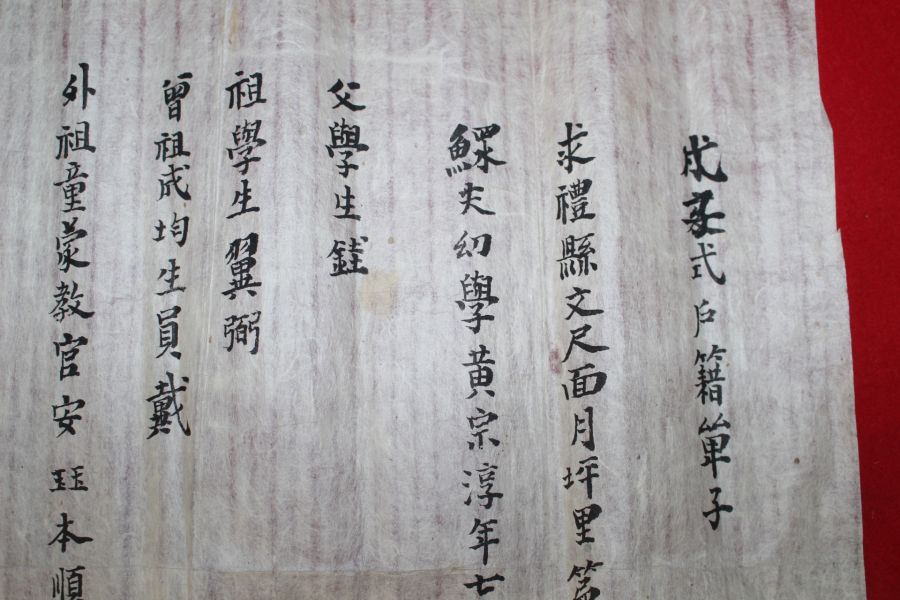 式戶籍單子
求禮縣文尺面月坪里第
鰥夫幼學黃宗淳年七
父學生
祖學生翼弼
曾祖成均生員戴
外祖童蒙教官安 珏本順